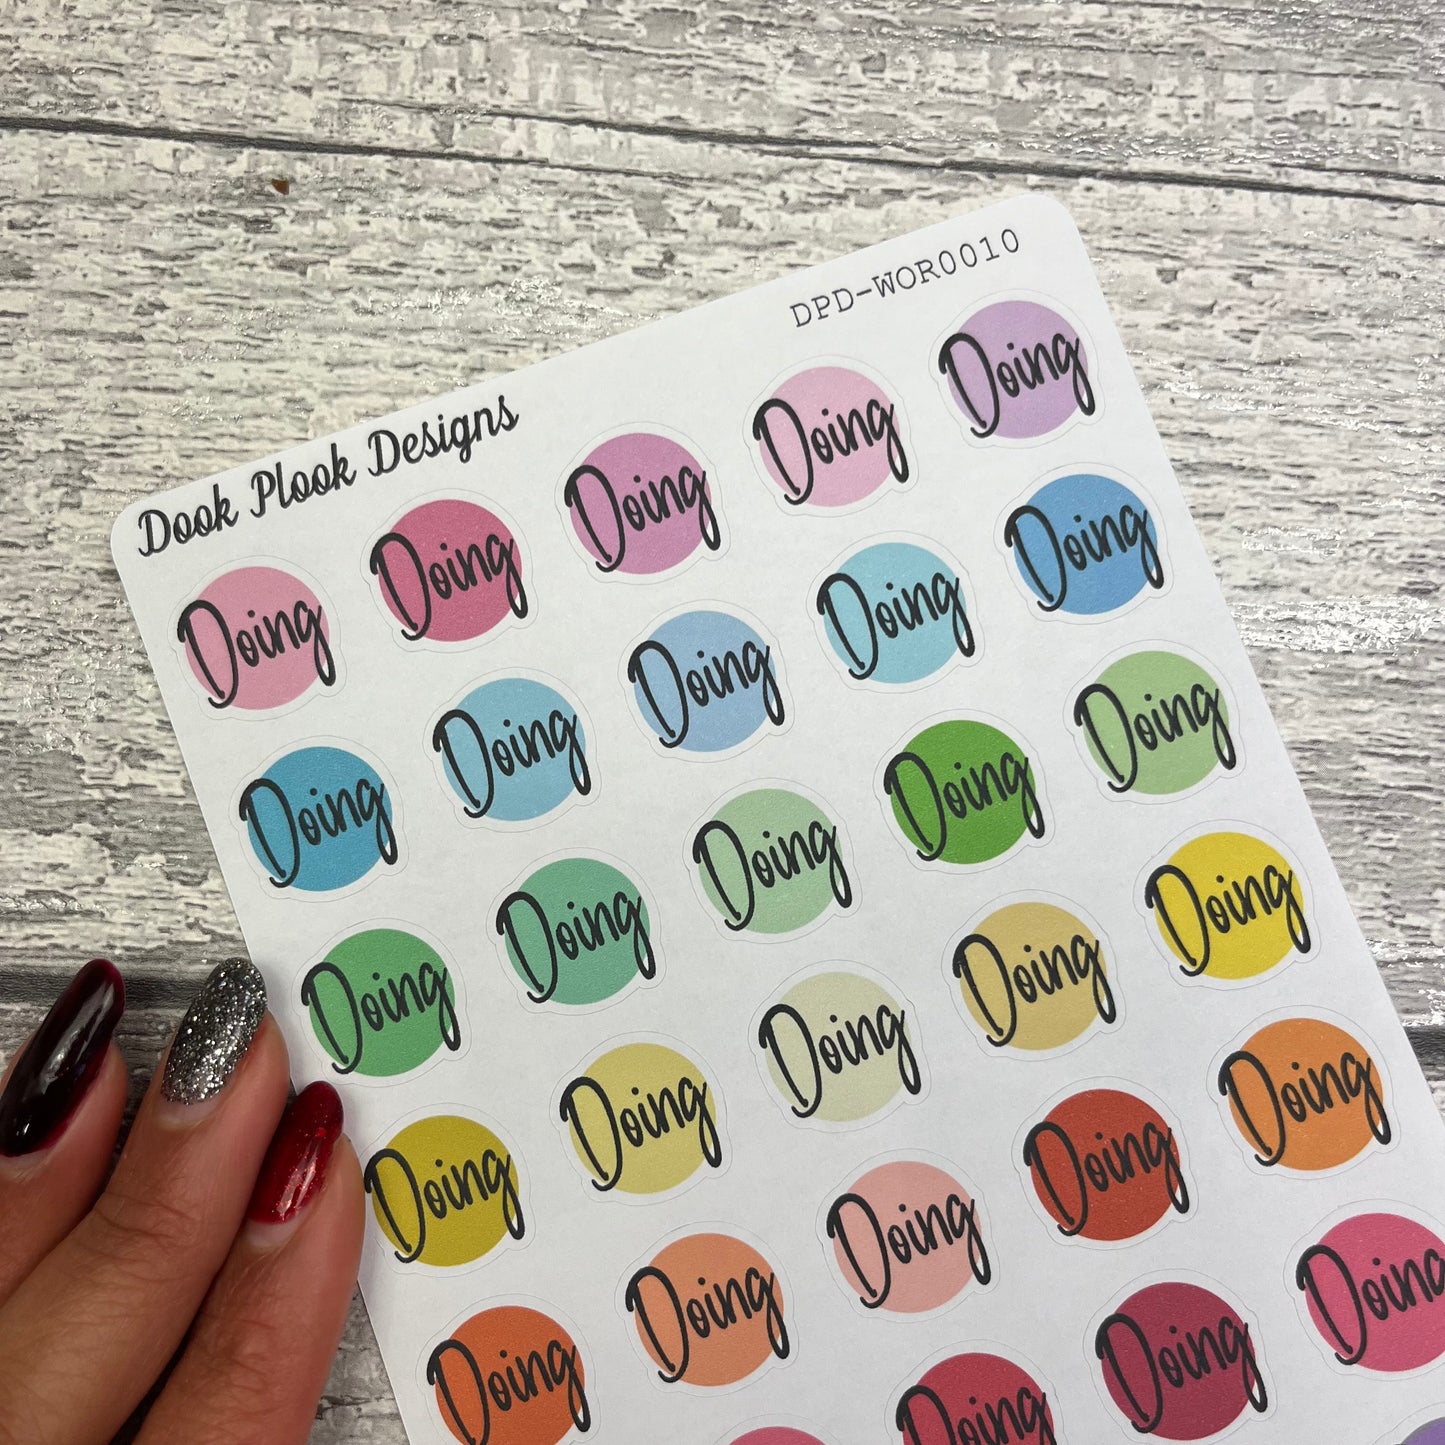 Dook Plook Designs
DPD-WOR0010
Doing Doing Doing Doing Doing
Doing Doing Doing Doing Doing
Doing Doing Doing Doing Doing
Doing Doing Doing Doing Doing
Doing Doing Doing Doing Doing
Doing Doing Doing